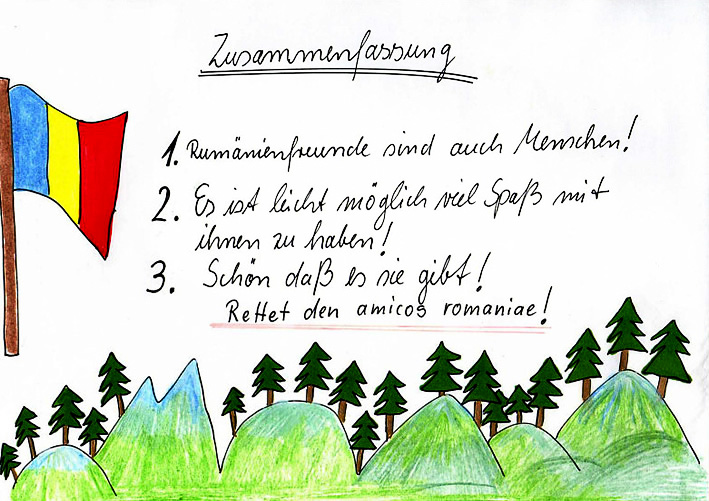 Zusammenfassung
1. Rumänienfreunde sind auch Menschen!
2. Es ist leicht möglich viel Spaß mit
ihnen zu haben!
3. Schön daß es sie gibt!
Rettet den amicos romaniae!